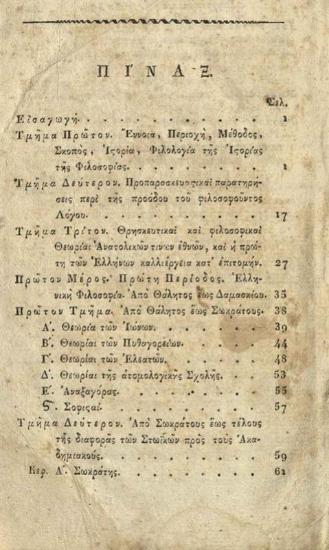 ΠΙΝΑΞ.
Σελ.
Εἰσαγωγή. . . . . . . . . . . 1
Τμῆμα Πρῶτον. Ἔννοια, Περιοχὴ, Μέθοδος,
Σκοπὸς, Ἱϛορία, Φιλολογία τῆς Ἱϛορίας
τῆς Φιλοσοφίας. . . . . . . . . 1
Τμῆμα Δεύτερον. Προπαρασκευαϛικαὶ παρατηρή-
σεις περὶ τῆς προόδου τοῦ φιλοσοφοῦντος
Λόγου. . . . . . . . . . 17
Τμῆμα Τρίτον. Θρησκευτικαὶ καὶ φιλοσοφικαὶ
Θεωρίαι Ἀνατολικῶν τινων ἐθνῶν, καὶ ἡ πρώ-
τη τῶν Ἑλλήνων καλλιέργεια κατ᾽ ἐπιτομήν. 27
Πρῶτον Μέρος. Πρώτη Περίοδος. Ἑλλη-
νικὴ Φιλοσοφία. Ἀπὸ Θάλητος ἕως Δαμασκίου. 35
Πρῶτον Τμῆμα. Ἀπὸ Θάλητος ἕως Σωκράτους. 38
Α΄. Θεωρία τῶν Ἰώνων. . . . . . 39
Β΄. Θεωρίαι τῶν Πυθαγορείων. . . . 44
Γ΄. Θεωρίαι τῶν Ἐλεατῶν. . . . . 48
Δ΄. Θεωρίαι τῆς ἀτομολογικῆς Σχολῆς. . 53
Ε΄. Ἀναξαγόρας. . . . . . . . 55
Ϛ΄. Σοφιϛαί. . . . . . . . . 57
Τμῆμα Δεύτερον. Ἀπὸ Σωκράτους ἕως τέλους
τῆς διαφορᾶς τῶν Στωϊκῶν πρὸς τοὺς Ἀκα-
δημιακούς. . . . . . . . . 59
Κεφ. Α΄. Σωκράτης. . . . . . . . 61